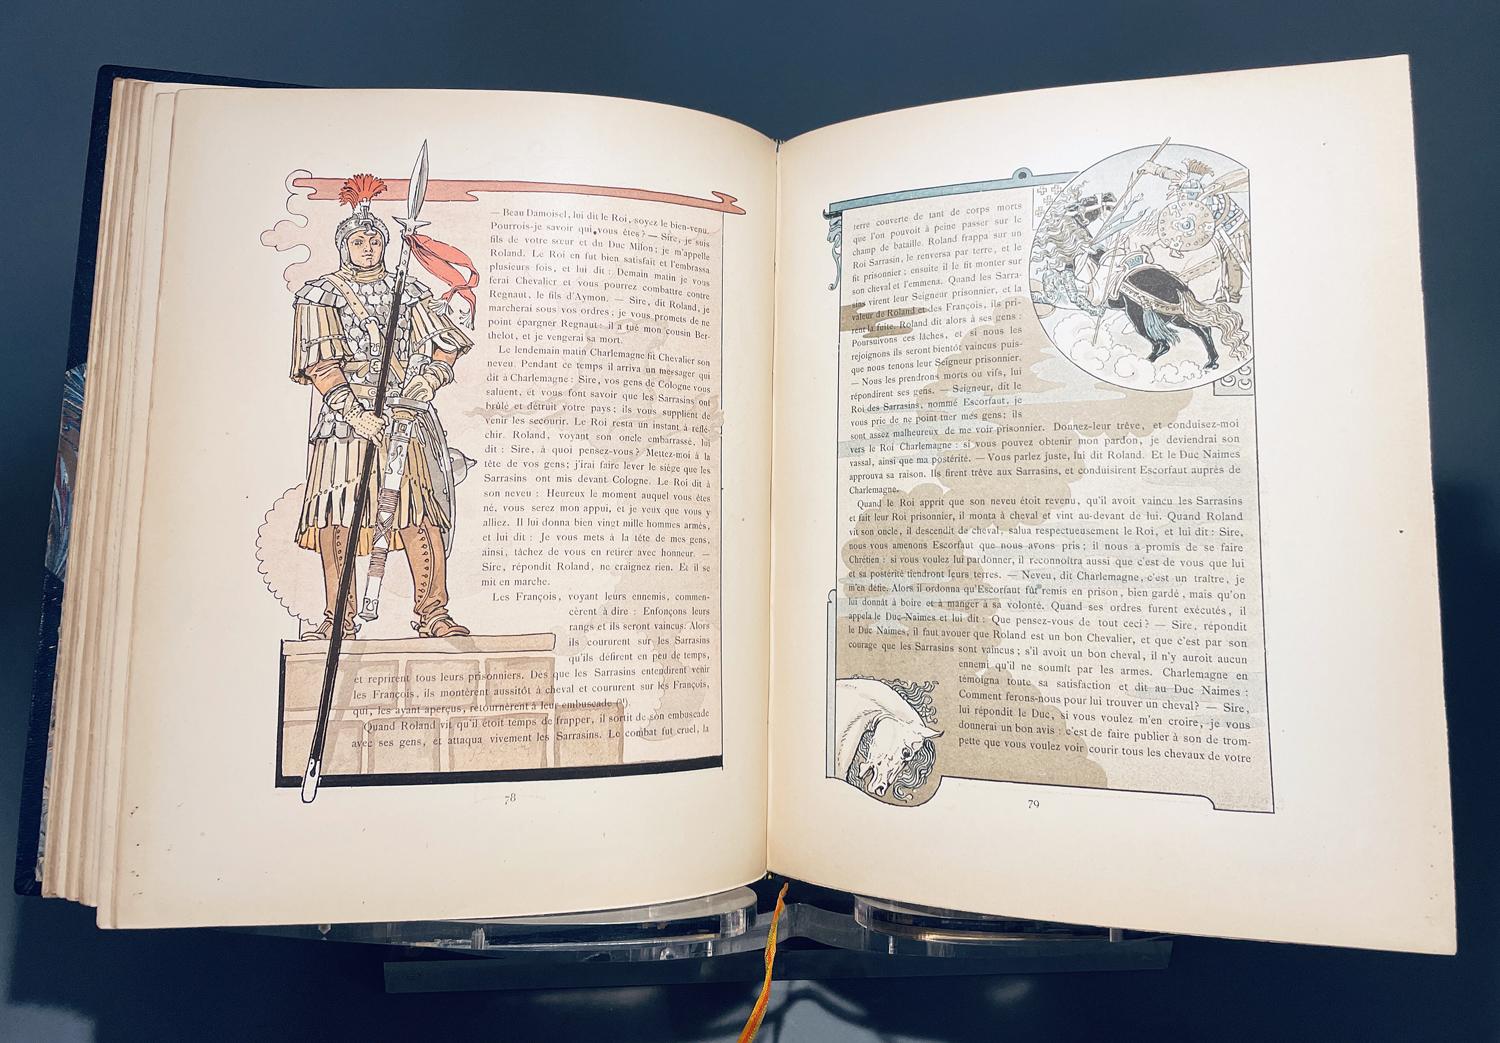 — Beau Damoisel, lui dit le Roi, soyez le bien-venu.
Pourrois-je savoir qui vous êtes? — Sire, je suis
fils de votre sœur et du Duc Milon; je m'appelle
Roland. Le Roi en fut bien satisfait et l'embrassa
plusieurs fois, et lui dit : Demain matin je vous
ferai Chevalier et vous pourrez combattre contre
Regnaut, le fils d'Aymon. — Sire, dit Roland, je
marcherai sous vos ordres; je vous promets de ne
point épargner Regnaut : il a tué mon cousin Ber-
thelot, et je vengerai sa mort.
Le lendemain matin Charlemagne fit Chevalier son
neveu. Pendant ce temps il arriva un messager qui
dit à Charlemagne : Sire, vos gens de Cologne vous
saluent, et vous font savoir que les Sarrasins ont
brûlé et détruit votre pays; ils vous supplient de
venir les secourir. Le Roi resta un instant à réflé-
chir. Roland, voyant son oncle embarrassé, lui
dit : Sire, à quoi pensez-vous? Mettez-moi à la
tête de vos gens; j'irai faire lever le siège que les
Sarrasins ont mis devant Cologne. Le Roi dit à
son neveu : Heureux le moment auquel vous êtes
né, vous serez mon appui, et je veux que vous y
alliez. Il lui donna bien vingt mille hommes armés,
et lui dit : Je vous mets à la tête de mes gens,
ainsi, tâchez de vous en retirer avec honneur. —
Sire, répondit Roland, ne craignez rien. Et il se
mit en marche.
Les François, voyant leurs ennemis, commen-
cèrent à dire : Enfonçons leurs
rangs et ils seront vaincus. Alors
ils coururent sur les Sarrasins
qu'ils défirent en peu de temps,
et reprirent tous leurs prisonniers. Dès que les Sarrasins entendirent venir
les François, ils montèrent aussitôt à cheval et coururent sur les François,
qui, les ayant aperçus, retournèrent à leur embuscade (?).
Quand Roland vit qu'il étoit temps de frapper, il sortit de son embuscade
avec ses gens, et attaqua vivement les Sarrasins. Le combat fut cruel, la
78
terre couverte de tant de corps morts
que l'on pouvoit à peine passer sur le
champ de bataille. Roland frappa sur un
Roi Sarrasin, le renversa par terre, et le
fit prisonnier; ensuite il le fit monter sur
son cheval et l'emmena. Quand les Sarra-
sins virent leur Seigneur prisonnier, et la
valeur de Roland et des François, ils pri-
rent la fuite. Roland dit alors à ses gens :
Poursuivons ces lâches, et si nous les
rejoignons ils seront bientôt vaincus puis-
que nous tenons leur Seigneur prisonnier.
— Nous les prendrons morts ou vifs, lui
répondirent ses gens. — Seigneur, dit le
Roi des Sarrasins, nommé Escorfaut, je
vous prie de ne point tuer mes gens; ils
sont assez malheureux de me voir prisonnier. Donnez-leur trêve, et conduisez-moi
vers le Roi Charlemagne : si vous pouvez obtenir mon pardon, je deviendrai son
vassal, ainsi que ma postérité. — Vous parlez juste, lui dit Roland. Et le Duc Naimes
approuva sa raison. Ils firent trêve aux Sarrasins, et conduisirent Escorfaut auprès de
Charlemagne.
Quand le Roi apprit que son neveu étoit revenu, qu'il avoit vaincu les Sarrasins
et fait leur Roi prisonnier, il monta à cheval et vint au-devant de lui. Quand Roland
vit son oncle, il descendit de cheval, salua respectueusement le Roi, et lui dit : Sire,
nous vous amenons Escorfaut que nous avons pris; il nous a promis de se faire
Chrétien : si vous voulez lui pardonner, il reconnoîtra aussi que c'est de vous que lui
et sa postérité tiendront leurs terres. — Neveu, dit Charlemagne, c'est un traître, je
m'en défie. Alors il ordonna qu'Escorfaut fût remis en prison, bien gardé, mais qu'on
lui donnât à boire et à manger à sa volonté. Quand ses ordres furent exécutés, il
appela le Duc Naimes et lui dit : Que pensez-vous de tout ceci? — Sire, répondit
le Duc Naimes, il faut avouer que Roland est un bon Chevalier, et que c'est par son
courage que les Sarrasins sont vaincus; s'il avoit un bon cheval, il n'y auroit aucun
ennemi qu'il ne soumît par les armes. Charlemagne en
témoigna toute sa satisfaction et dit au Duc Naimes :
Comment ferons-nous pour lui trouver un cheval? — Sire,
lui répondit le Duc, si vous voulez m'en croire, je vous
donnerai un bon avis : c'est de faire publier à son de trom-
pette que vous voulez voir courir tous les chevaux de votre
79